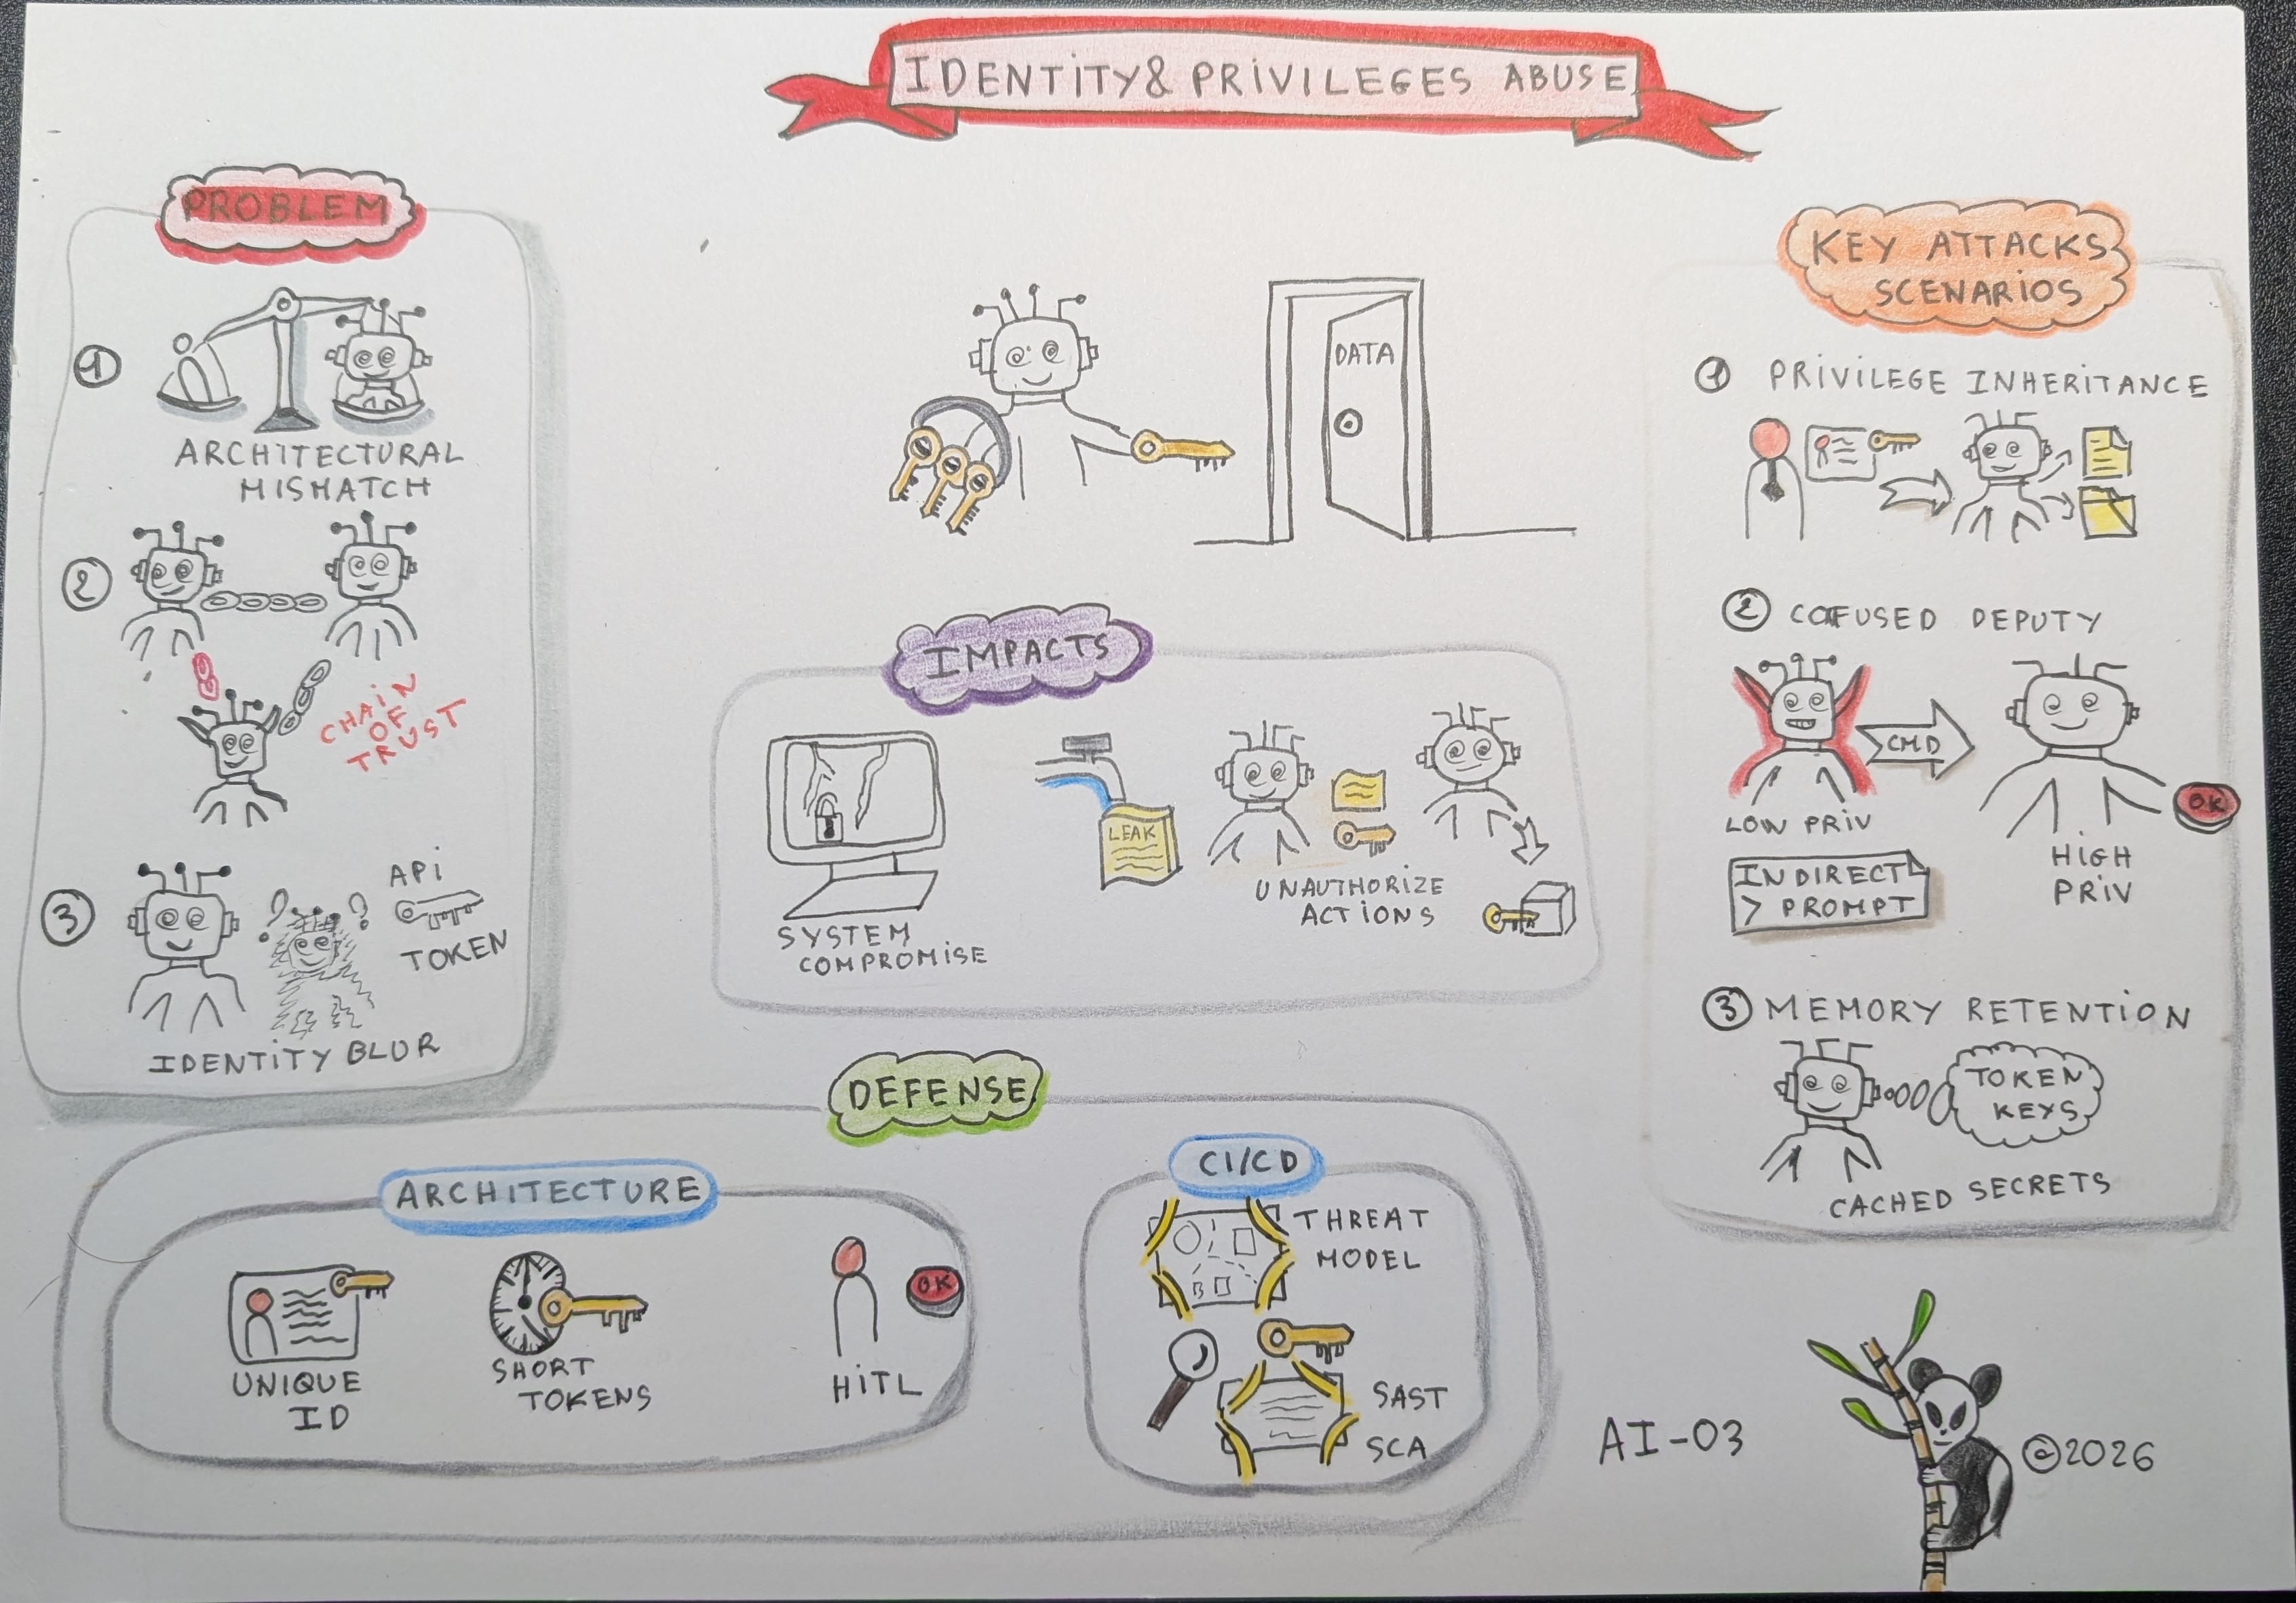 IDENTITY & PRIVILEGES ABUSE
PROBLEM
1
ARCHITECTURAL
MISMATCH
2
CHAIN
OF
TRUST
3
? ?
API
TOKEN
IDENTITY BLUR
DATA
IMPACTS
LEAK
SYSTEM
COMPROMISE
UNAUTHORIZE
ACTIONS
KEY ATTACKS
SCENARIOS
1 PRIVILEGE INHERITANCE
2 CONFUSED DEPUTY
CMD
OK
LOW PRIV
HIGH
PRIV
INDIRECT
> PROMPT
3 MEMORY RETENTION
TOKEN
KEYS
CACHED SECRETS
DEFENSE
ARCHITECTURE
UNIQUE
ID
SHORT
TOKENS
OK
HITL
CI/CD
THREAT
MODEL
SAST
SCA
AI-03
©2026